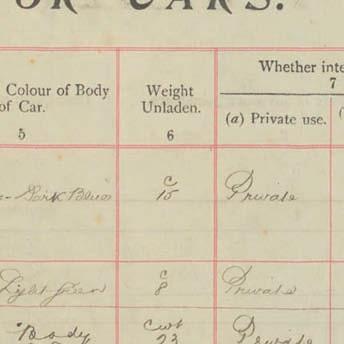 OR CARS.
Colour of Body
of Car.
5
Weight
Unladen.
6
Whether inte
7
(a) Private use.
(
Dark Blue
c
15
Private
Light Green
c
8
Private
Body
cwt
23
Private